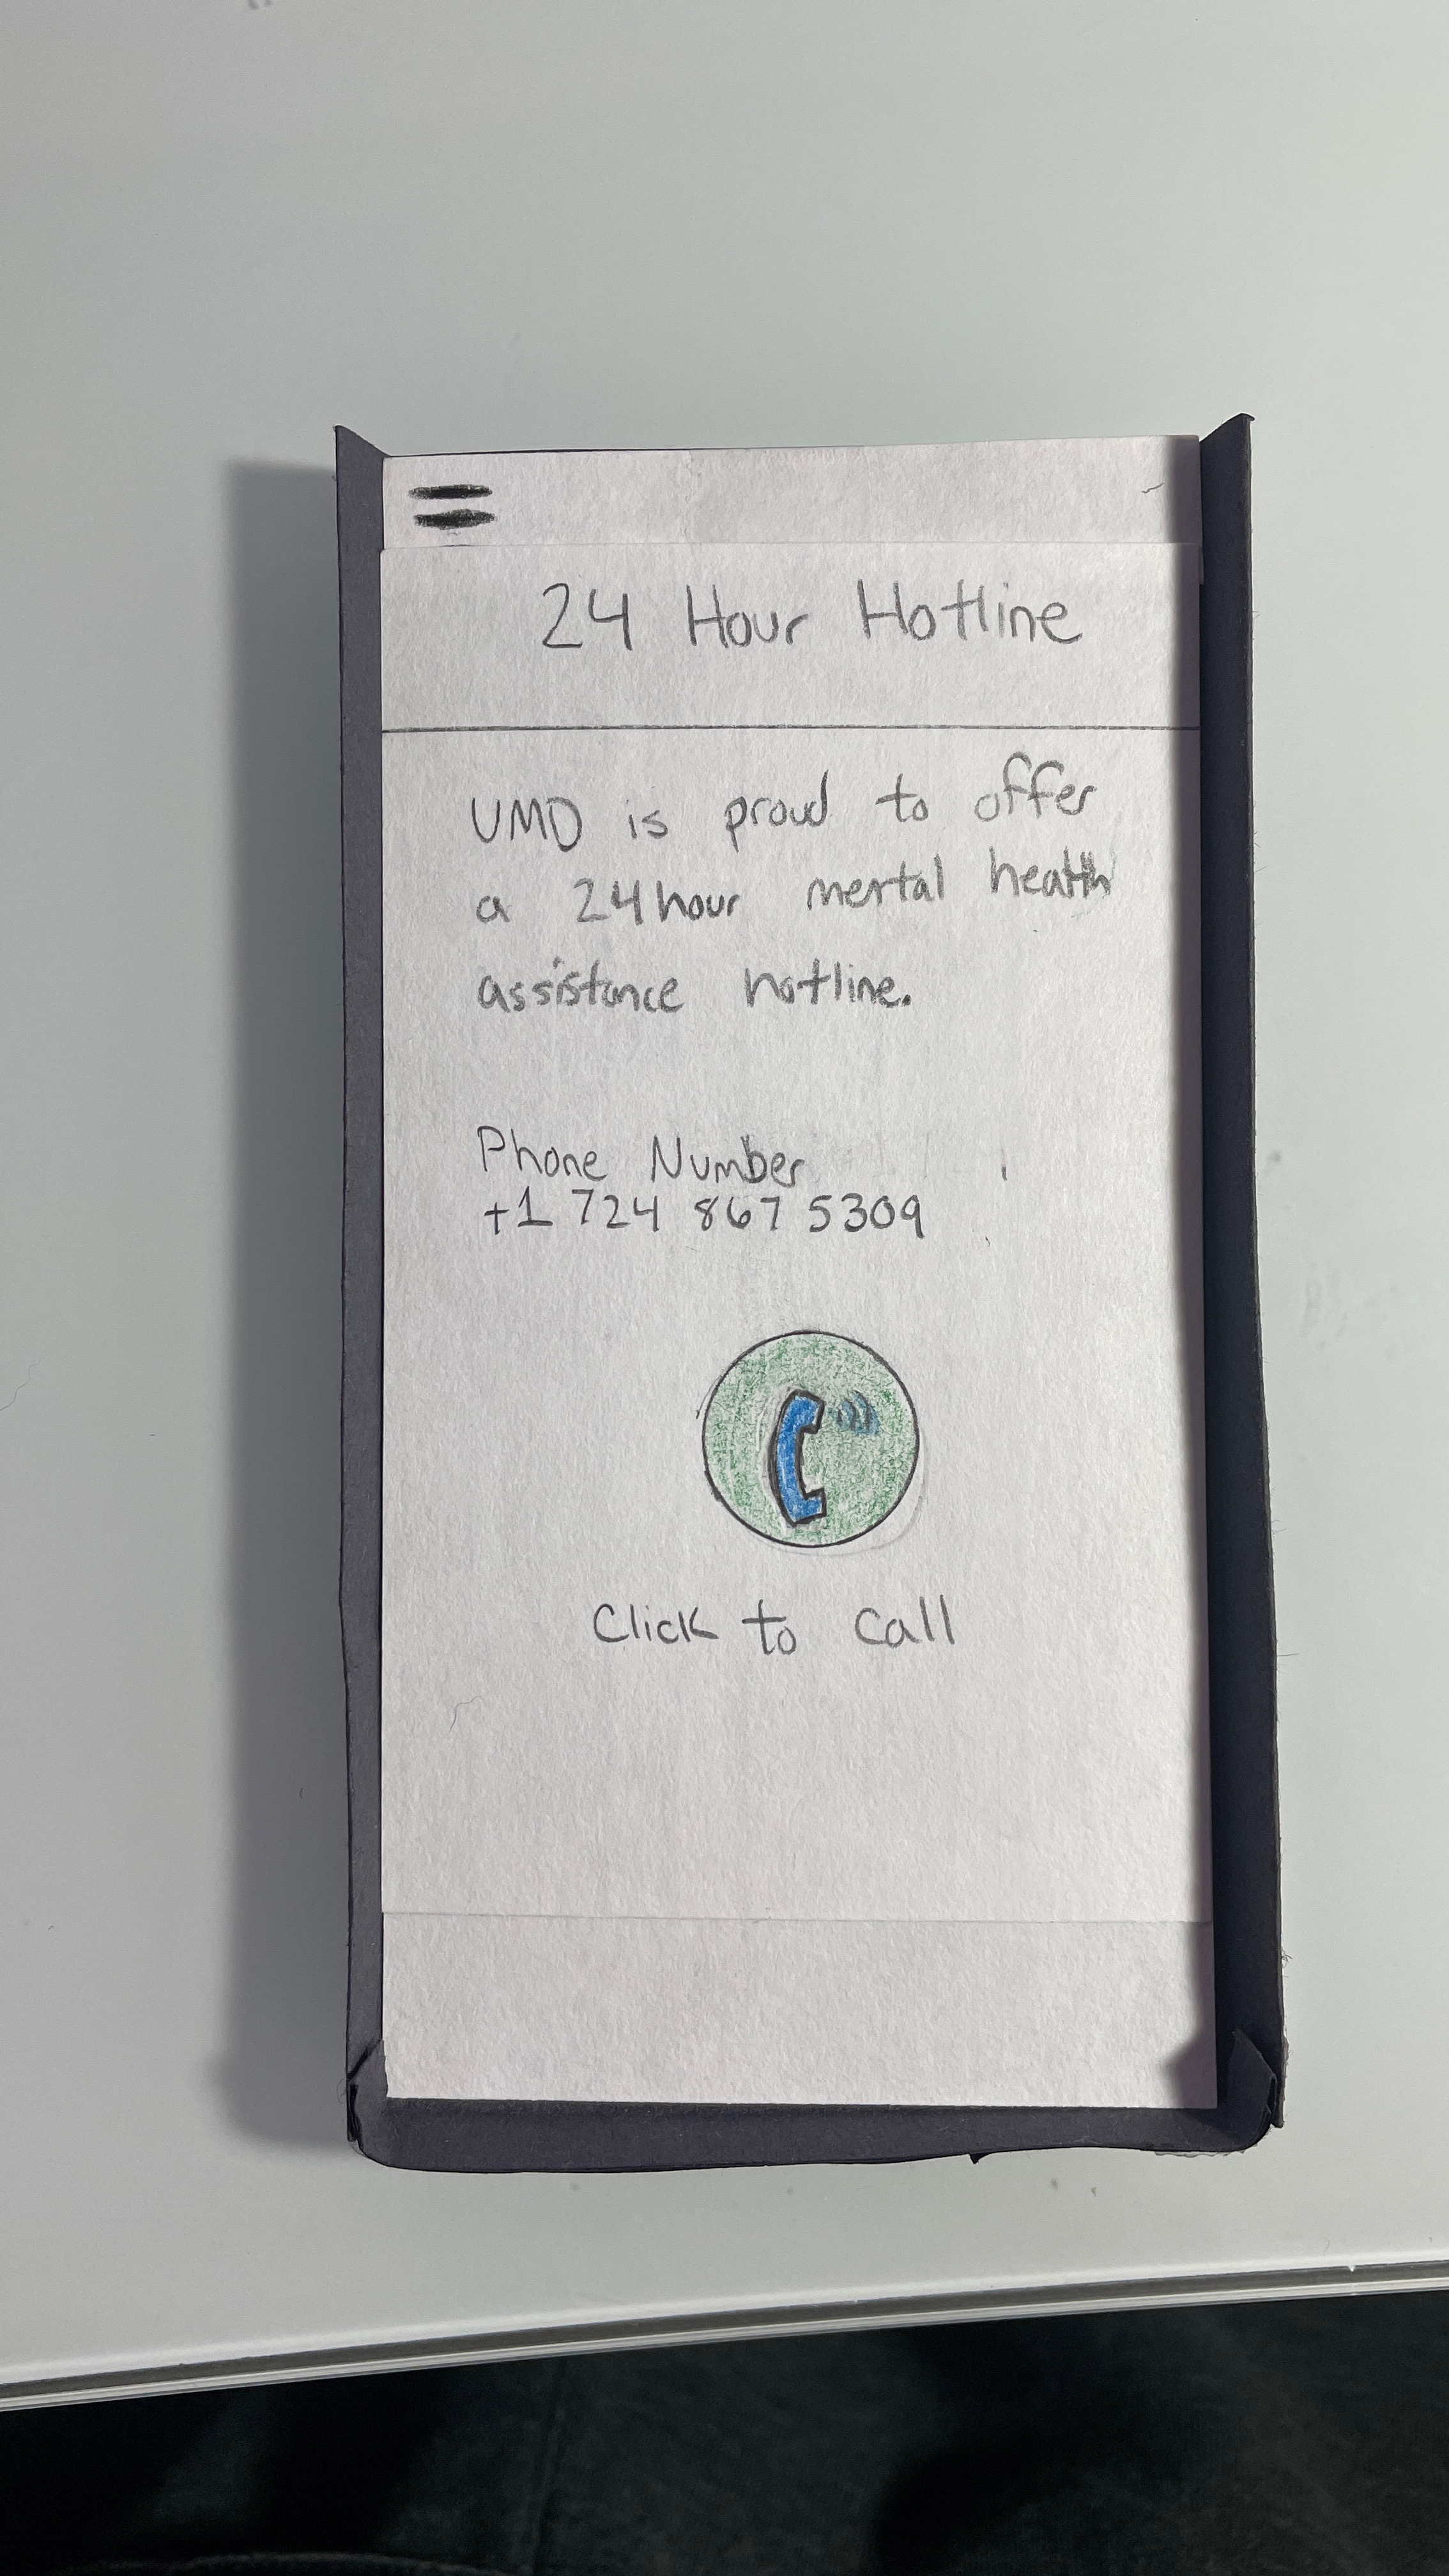 24 Hour Hotline
UMD is proud to offer
a 24 hour mental health
assistance hotline.
Phone Number
+1 724 867 5309
Click to call